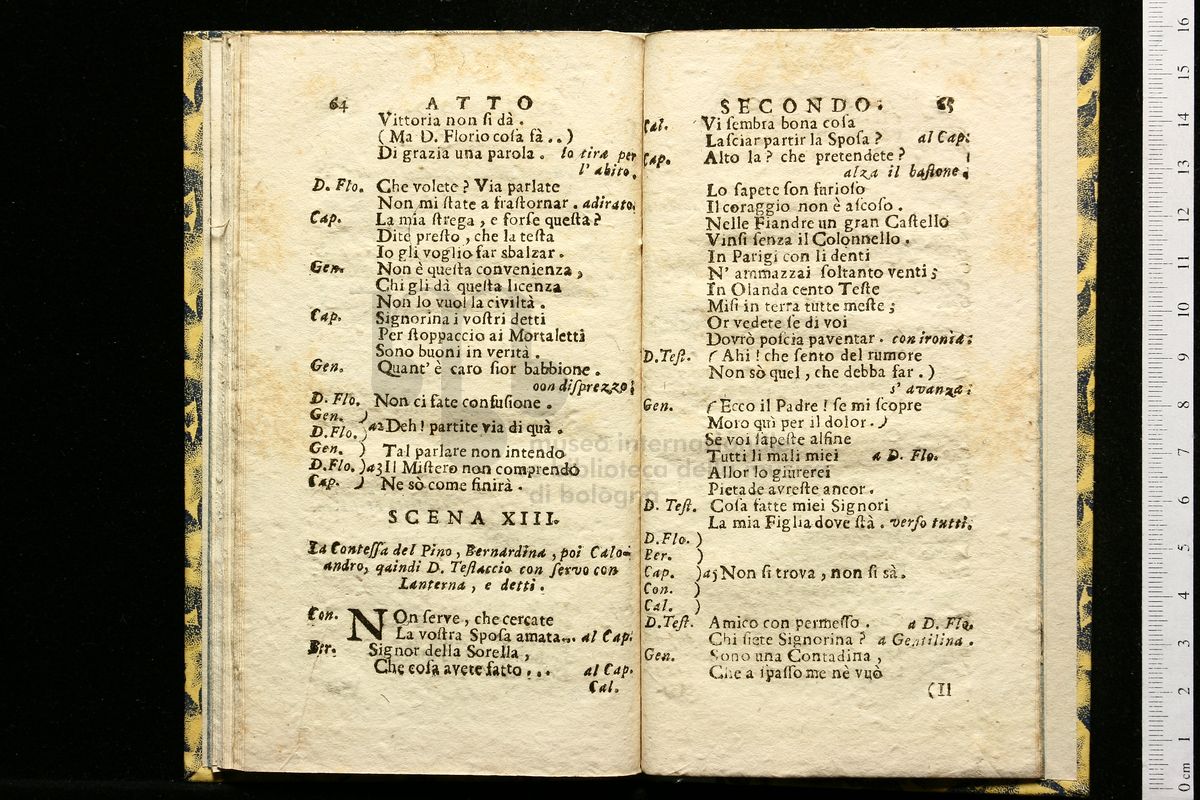 64 ATTO
Vittoria non ſi dà .
( Ma D. Florio coſa fà . . )
Di grazia una parola . lo tira per
l' abito.
D. Flo. Che volete ? Via parlate
Non mi ſtate a fraſtornar . adirato.
Cap. La mia ſtrega , e forſe queſta ?
Dite preſto , che la teſta
Io gli voglio far sbalzar .
Gen. Non è queſta convenienza ,
Chi gli dà queſta licenza
Non lo vuol la civiltà .
Cap. Signorina i voſtri detti
Per ſtoppaccio ai Mortaletti
Sono buoni in verità .
Gen. Quant' è caro ſior babbione .
con diſprezzo;
D. Flo. Non ci fate confuſione .
Gen. )
D. Flo. ) a2 Deh ! partite via di quà .
Gen. ) Tal parlare non intendo
D. Flo. ) a3 Il Miſtero non comprendo
Cap. ) Ne sò come finirà .
SCENA XIII.
La Conteſſa del Pino , Bernardina , poi Calo-
andro, quindi D. Teſtaccio con ſervo con
Lanterna , e detti .
Con. NOn ſerve , che cercate
La voſtra Spoſa amata... al Cap:
Ber. Signor della Sorella ,
Che coſa avete fatto . . . al Cap.
Cal.
SECONDO. 65
Cal. Vi ſembra bona coſa
Laſciar partir la Spoſa ? al Cap:
Cap. Alto la ? che pretendete ?
alza il baſtone.
Lo ſapete ſon furioſo
Il coraggio non è aſcoſo .
Nelle Fiandre un gran Caſtello
Vinſi ſenza il Colonnello .
In Parigi con li denti
N' ammazzai ſoltanto venti ;
In Olanda cento Teſte
Miſi in terra tutte meſte ;
Or vedete ſe di voi
Dovrò poſcia paventar . con ironìa;
D. Teſt. ( Ahi ! che ſento del rumore
Non sò quel , che debba far . )
s' avanza;
Gen. ( Ecco il Padre ! ſe mi ſcopre
Moro quì per il dolor . )
Se voi ſapeſte alfine
Tutti li mali miei a D. Flo.
Allor lo giurerei
Pietade avreſte ancor .
D. Teſt. Coſa fatte miei Signori
La mia Figlia dove ſtà . verſo tutti.
D. Flo. )
Ber. )
Cap. ) a5 Non ſi trova , non ſi sà .
Con. )
Cal. )
D. Teſt. Amico con permeſſo . a D. Flo.
Chi ſiete Signorina ? a Gentilina .
Gen. Sono una Contadina ,
Che a ſpaſſo me nè vuò
(Il